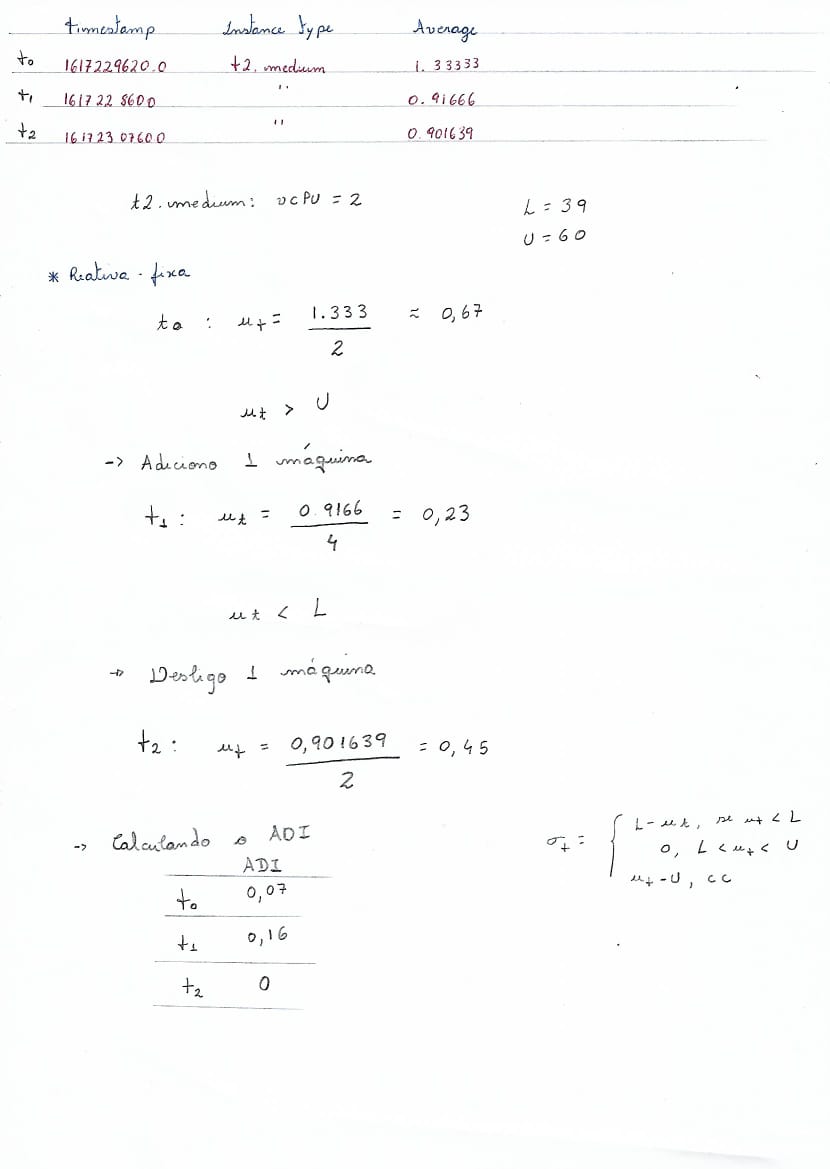 timestamp Instance type Average
t0 1617229620.0 t2.medium 1.33333
t1 161722 8600 " 0.91666
t2 161723 07600 " 0.901639
t2.medium: vCPU = 2
L = 39
U = 60
* Reativa - fixa
t0 : μt = 1.333 / 2 ≈ 0,67
μt > U
-> Adiciono 1 máquina
t1 : μt = 0.9166 / 4 = 0,23
μt < L
-> Desligo 1 máquina
t2 : μt = 0,901639 / 2 = 0,45
-> Calculando o ADI
σt = { L - μt, se μt < L
0, L < μt < U
μt - U, cc
ADI
t0 0,07
t1 0,16
t2 0